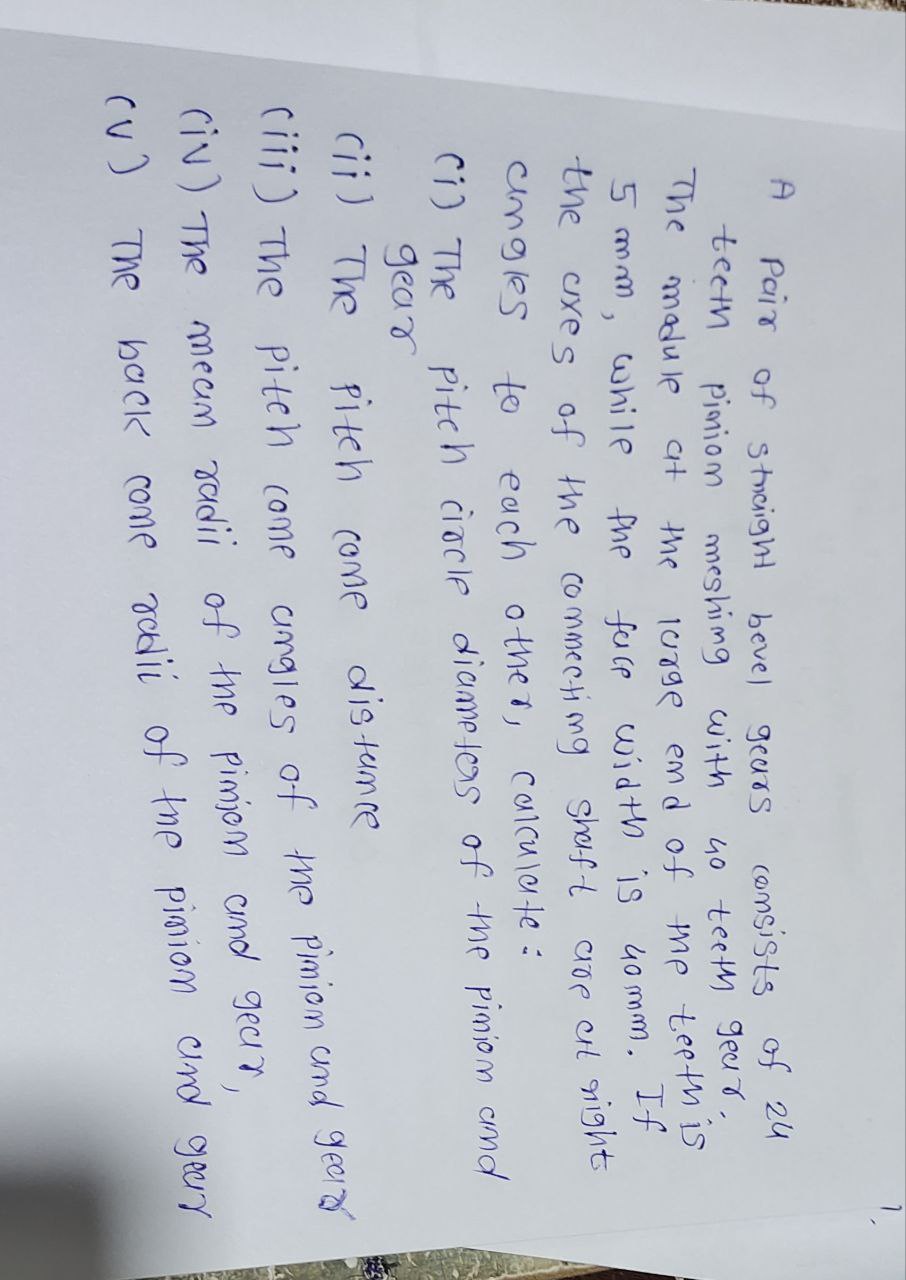 A pair of straight bevel gears consists of 24
teeth pinion meshing with 40 teeth gear.
The module at the large end of the teeth is
5 mm, while the face width is 40mm. If
the axes of the connecting shaft are at right
angles to each other, calculate:
(i) The pitch circle diameters of the pinion and
gear
(ii) The pitch cone distance
(iii) The pitch cone angles of the pinion and gear
(iv) The mean radii of the pinion and gear,
(v) The back cone radii of the pinion and gear